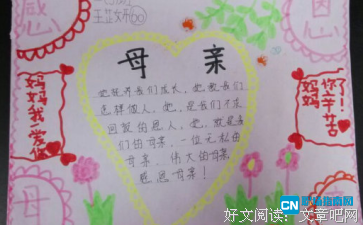 感心
恩心
母 亲
她抚养我们成长,她教我们
怎样做人,她,是我们不求
回报的恩人,她,就是我
们的母亲,一位无私的
母亲,伟大的母亲
感恩母亲!
妈妈
我爱你
妈妈
你辛苦了
母
亲
CN
好文阅读:文章吧网